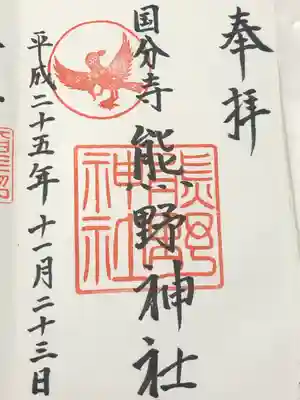 奉拝
国分寺 熊野神社
熊野
神社
平成二十五年十一月二十三日